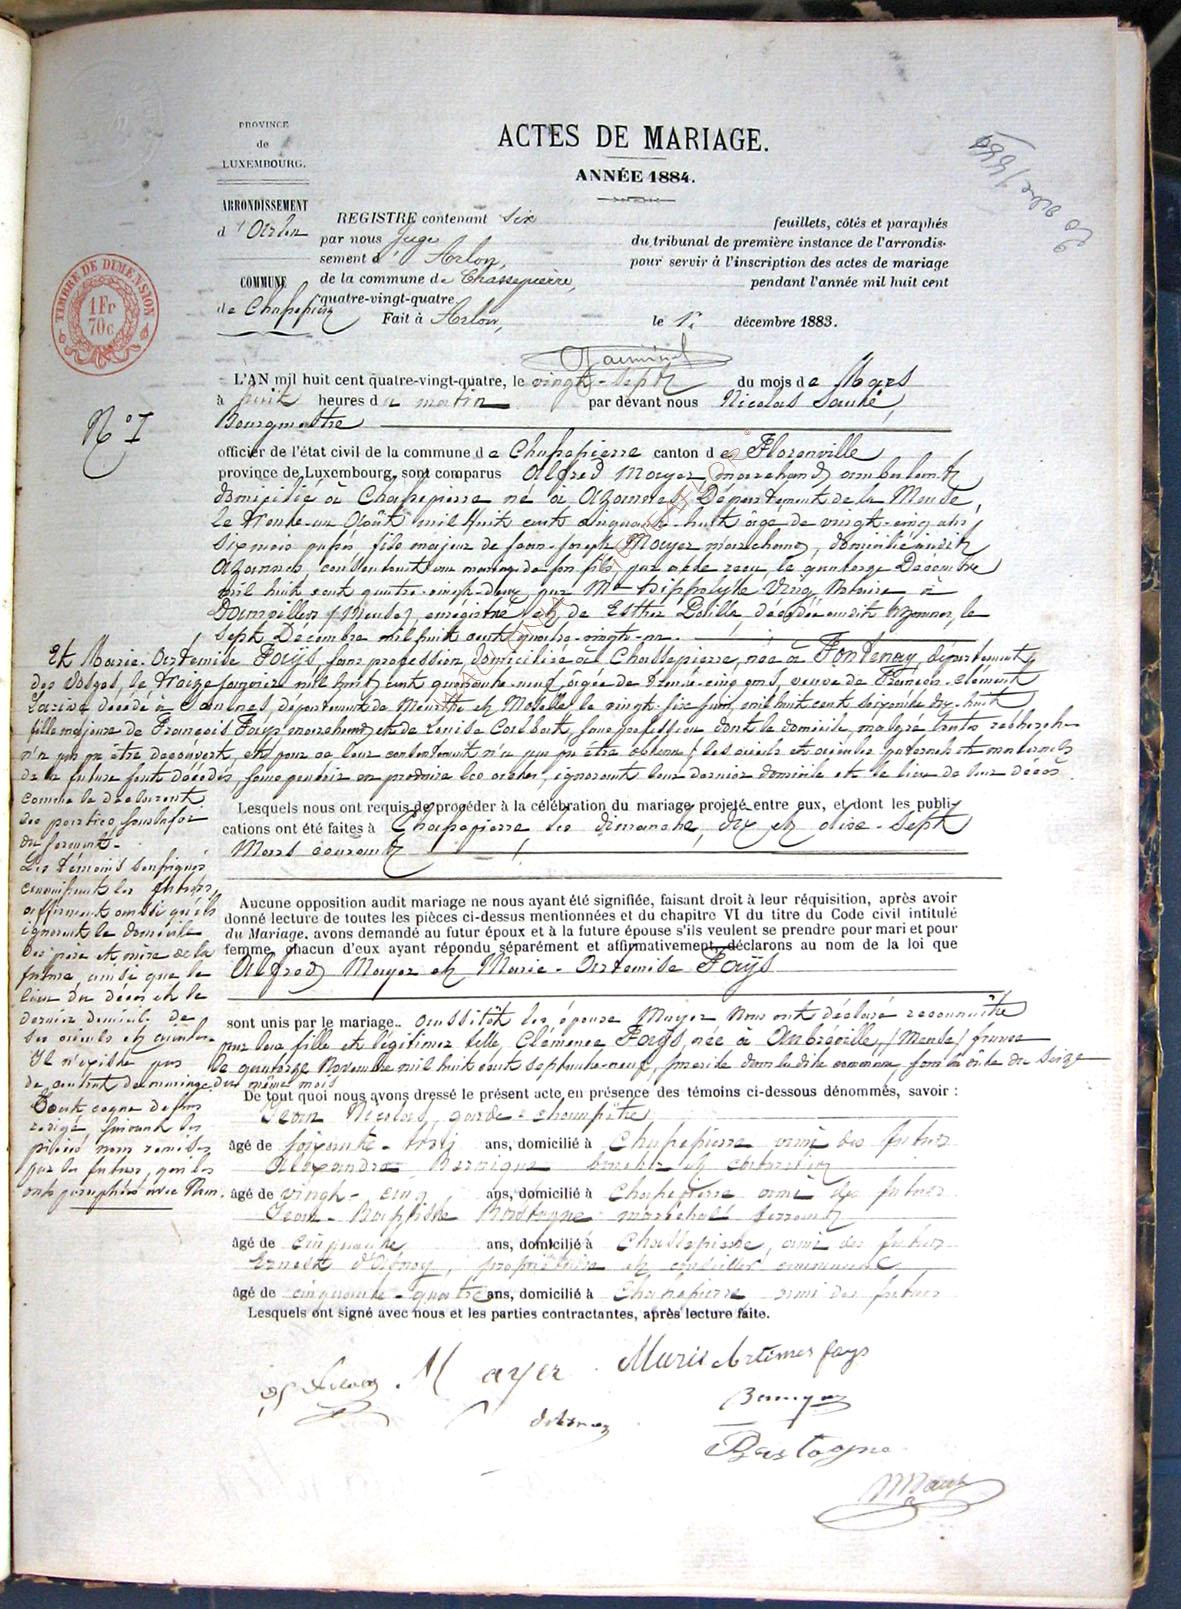 PROVINCE
de
LUXEMBOURG.
ACTES DE MARIAGE.
ANNÉE 1884.
ARRONDISSEMENT
d'Arlon
COMMUNE
de Chassepierre
TIMBRE DE DIMENSION
1 Fr
70c
REGISTRE contenant six feuillets, côtés et paraphés
par nous Juge du tribunal de première instance de l'arrondis-
sement d'Arlon, pour servir à l'inscription des actes de mariage
de la commune de Chassepierre, pendant l'année mil huit cent
quatre-vingt-quatre.
Fait à Arlon, le 1r décembre 1883.
N° 1
L'AN mil huit cent quatre-vingt-quatre, le vingt-sept du mois de Mars
à huit heures du matin par devant nous Nicolas
Bourgmestre
officier de l'état civil de la commune de Chassepierre canton de Florenville
province de Luxembourg, sont comparus Alfred Mayer marchand ambulant
domicilié à Chassepierre né à Azannes, Département de la Meuse,
le trente-un Août mil huit cent cinquante-huit âgé de vingt-cinq ans
six mois passés, fils majeur de Jean-Joseph Mayer marchand, domicilié audit
Azannes consentant au mariage de son fils par acte reçu le quatorze Décembre
mil huit cent quatre-vingt-deux par Me Hippolyte notaire à
Damvillers (Meuse), enregistré et de Esther décédée audit Azannes, le
sept Décembre mil huit cent quatre-vingt-un.
Et Marie-Artemise Faÿs, sans profession domiciliée à Chassepierre, née à Fontenay, département
des Vosges, le treize Janvier mil huit cent quarante-neuf âgée de trente-cinq ans, veuve de François-Clément
décédé à département de Meurthe et Moselle le vingt-six juin mil huit cent soixante dix-huit
fille majeure de François Faÿs marchand et de Louise sans profession dont le domicile, malgré toutes recherches
n'a pas pu être découvert, et pour ce leur consentement n'a pas pu être obtenu; les aïeuls et aïeules paternels et maternels
de la future sont décédés, sans pouvoir en produire les actes, ignorant leur dernier domicile et le lieu de leur décès
comme le déclarent
les parties sous la foi
du serment.
Lesquels nous ont requis de procéder à la célébration du mariage projeté entre eux, et dont les publi-
cations ont été faites à Chassepierre les dimanche, dix et dix-sept
Mars courant
Les témoins soussignés
connaissant les futurs
affirment aussi qu'ils
ignorent le domicile
des père et mère de la
future, ainsi que le
lieu du décès et le
dernier domicile de
ses aïeuls et aïeules.
Il n'existe pas
de contrat de mariage
Aucune opposition audit mariage ne nous ayant été signifiée, faisant droit à leur réquisition, après avoir
donné lecture de toutes les pièces ci-dessus mentionnées et du chapitre VI du titre du Code civil intitulé
du Mariage, avons demandé au futur époux et à la future épouse s'ils veulent se prendre pour mari et pour
femme, chacun d'eux ayant répondu séparément et affirmativement, déclarons au nom de la loi que
Alfred Mayer et Marie-Artemise Faÿs
sont unis par le mariage. Aussitôt les époux Mayer nous ont déclaré reconnaître
pour leur fille et légitimer telle, Clémence Faÿs, née à Aubréville, (Meuse) france
le quatorze Novembre mil huit cent septante-neuf, inscrite dans ladite commune sous la date du seize
du même mois
De tout quoi nous avons dressé le présent acte en présence des témoins ci-dessous dénommés, savoir :
Jean Nicolas, garde-champêtre
âgé de soixante-trois ans, domicilié à Chassepierre ami des futurs
Alexandre
âgé de vingt-cinq ans, domicilié à Chassepierre ami des futurs
Jean-Baptiste Bastogne maréchal ferrant
âgé de cinquante ans, domicilié à Chassepierre, ami des futurs
Ernest propriétaire et conseiller communal
âgé de cinquante-quatre ans, domicilié à Chassepierre ami des futurs
Lesquels ont signé avec nous et les parties contractantes, après lecture faite.
rédigé suivant les
pièces nous remises
par les futurs, qui les
ont paraphées avec Nous.
Mayer
Marie Artémise fays
Bastogne